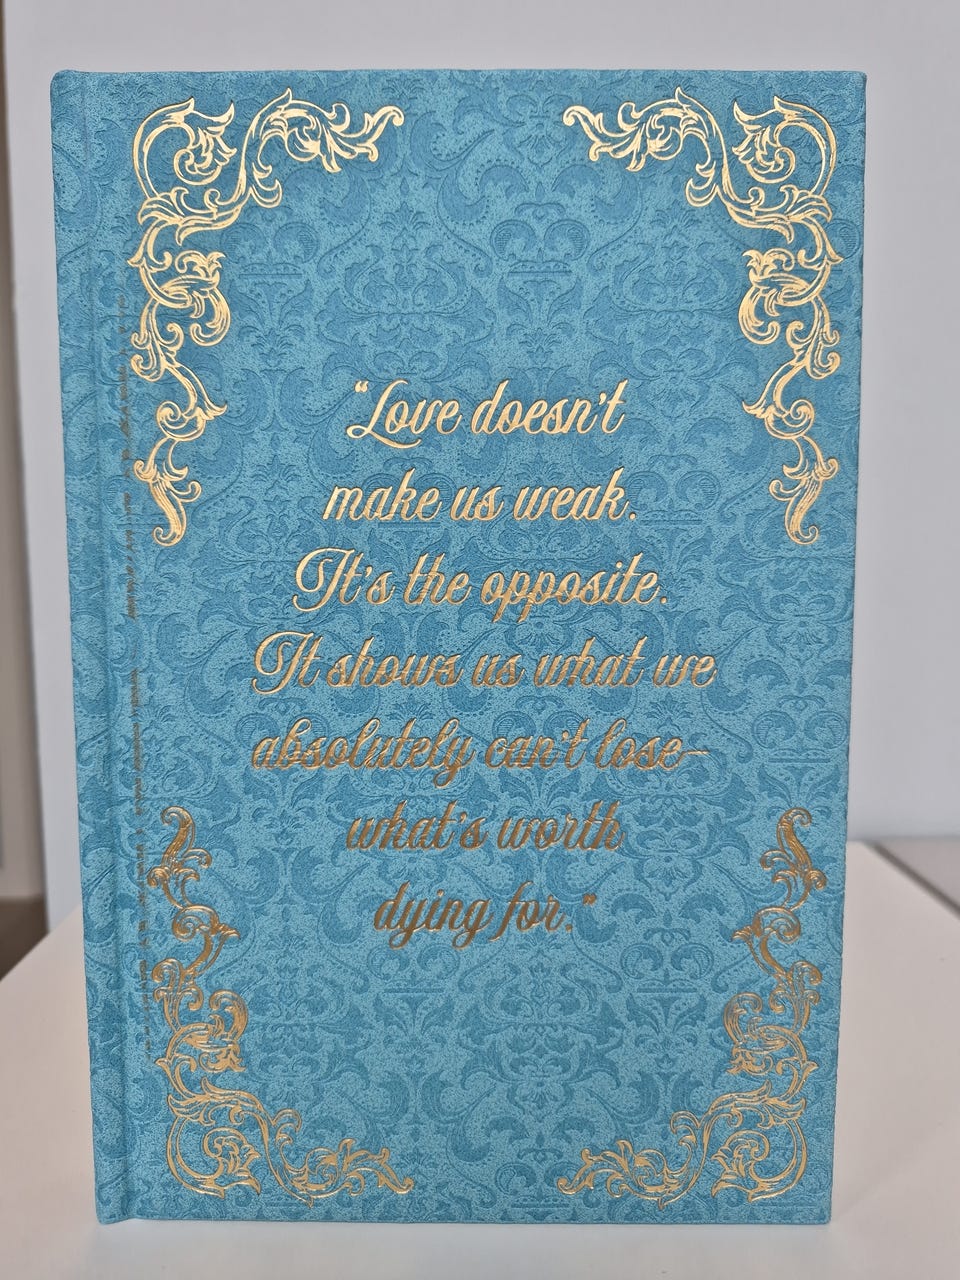 “Love doesn't
make us weak.
It's the opposite.
It shows us what we
absolutely can't lose—
what's worth
dying for.”